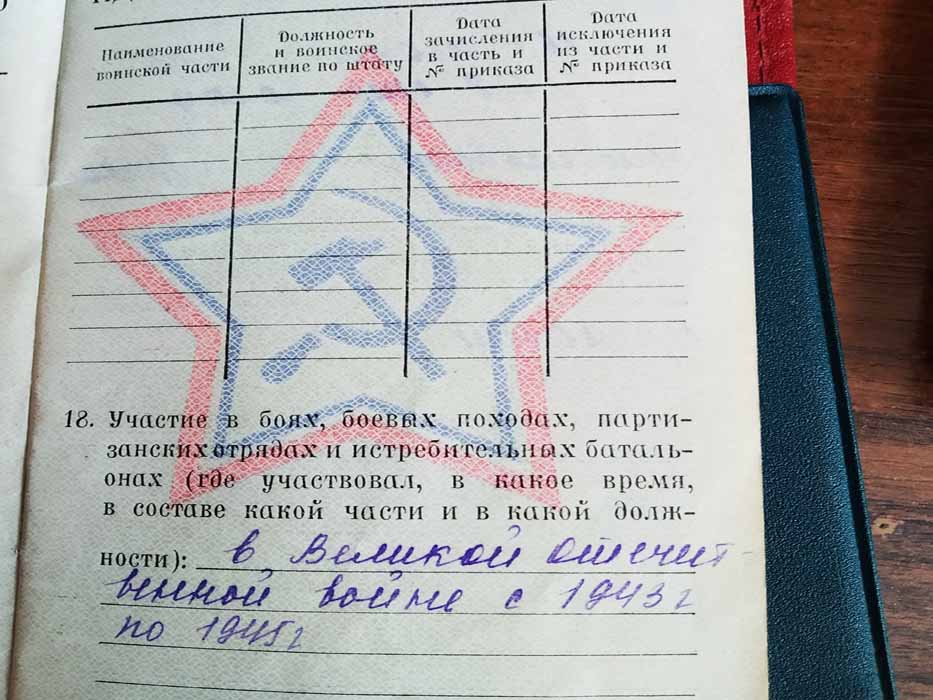 Наименование
воинской части
Должность
и воинское
звание по штату
Дата
зачисления
в часть и
№ приказа
Дата
исключения
из части и
№ приказа
18. Участие в боях, боевых походах, парти-
занских отрядах и истребительных баталь-
онах (где участвовал, в какое время,
в составе какой части и в какой долж-
ности): в Великой отечит-
венной войне с 1943г
по 1945г